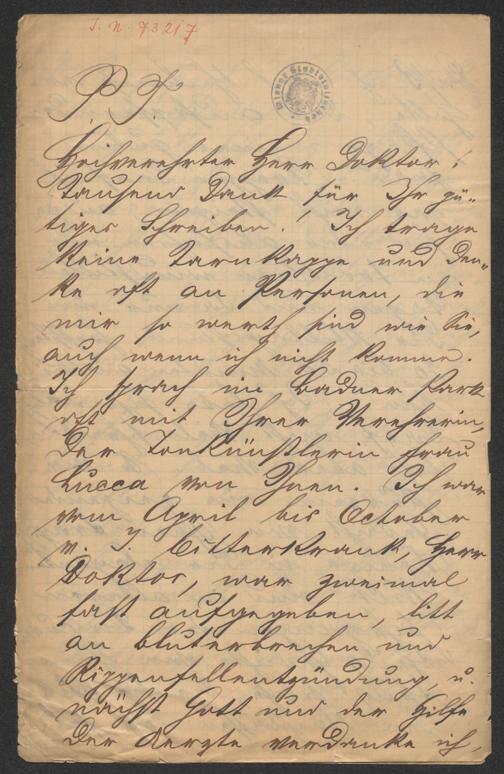 I. N. 73217
Wiener Stadtbibliothek
P. T.
Hochverehrter Herr Doktor!
Tausend Dank für Ihr gü-
tiges Schreiben! Ich trage
keine Tarnkappe und den-
ke oft an Personen, die
mir so werth sind wie Sie,
auch wenn ich nicht komme.
Ich sprach im Badner Park
oft mit Ihrer Verehrerin,
der Tonkünstlerin Frau
Lucca von Ihnen. Ich war
vom April bis October
v. J. bitterkrank, Herr
Doktor, war zweimal
fast aufgegeben, litt
an Bluterbrechen und
Rippenfellentzündung, u.
nächst Gott und der Hilfe
der Aerzte verdanke ich,